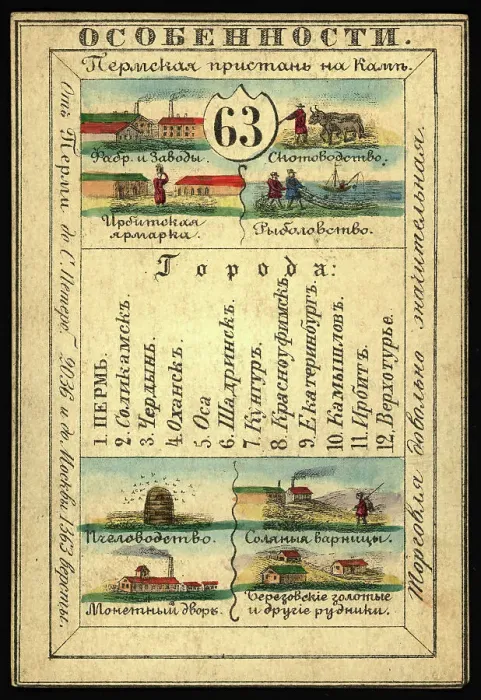 ОСОБЕННОСТИ.
Пермская пристань на Камѣ.
63
Фабр. и Заводы.
Скотоводство.
Ирбитская
ярмарка.
Рыболовство.
Города:
1. ПЕРМЬ.
2. Соликамскъ.
3. Чердынь.
4. Оханскъ.
5. Оса
6. Шадринскъ.
7. Кунгуръ.
8. Красноуфимскъ
9. Екатеринбургъ.
10. Камышловъ.
11. Ирбитъ.
12. Верхотурье.
Пчеловодство.
Соляныя варницы.
Монетный дворъ.
Березовскіе золотые
и другіе рудники.
Отъ Перми до С. Петерб. 2036 и до Москвы 1363 версты.
Торговля довольно значительная.